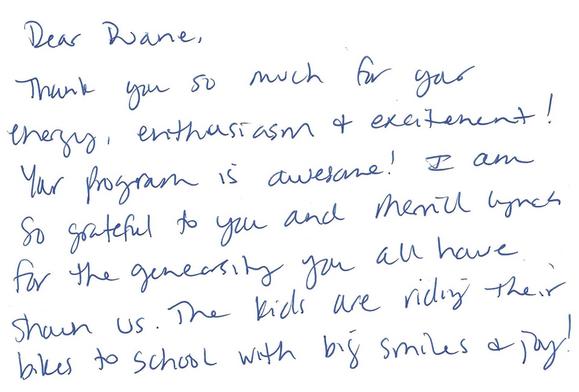 Dear Duane,
Thank you so much for your
energy, enthusiasm & excitement!
Your program is awesome! I am
so grateful to you and Merrill Lynch
for the generosity you all have
shown us. The kids are riding their
bikes to school with big smiles & joy!